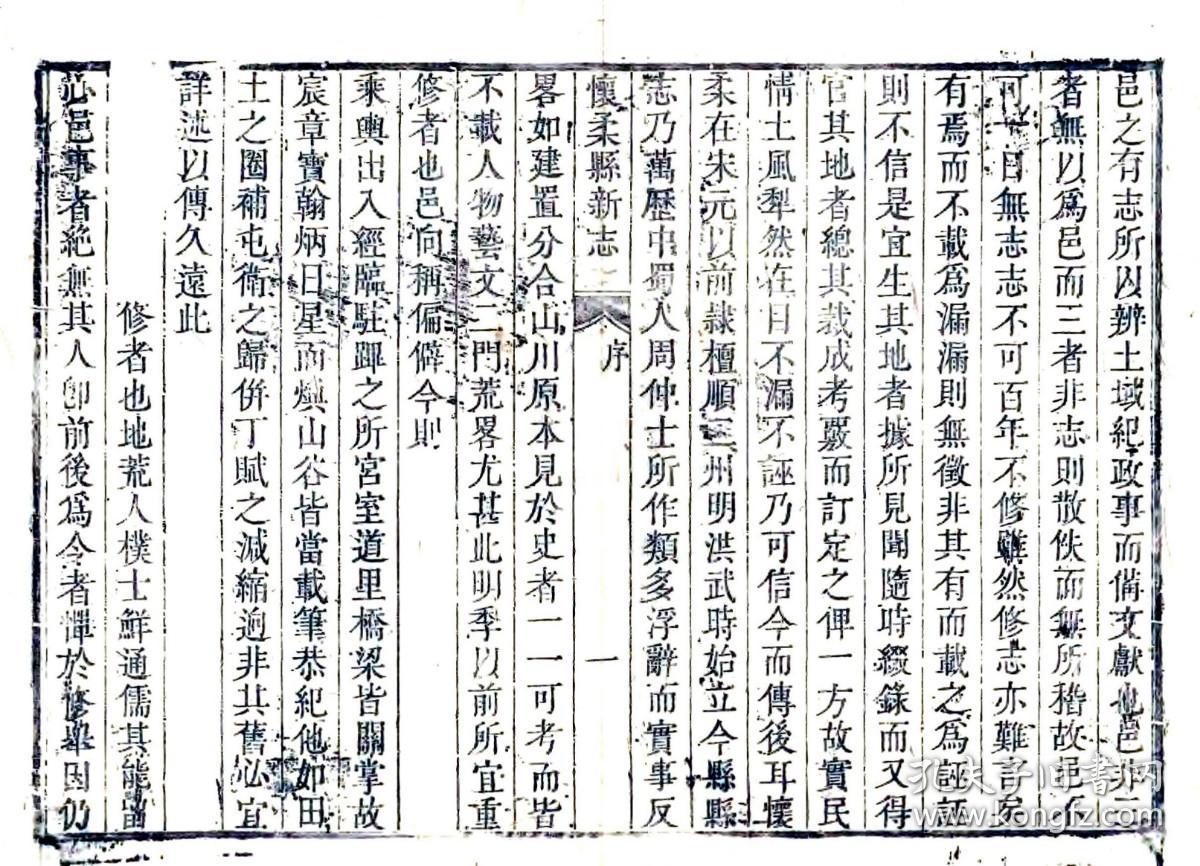 邑之有志所以辨土域紀政事而備文獻也邑非三
者無以爲邑而三者非志則散佚而無所稽故邑不
可一日無志志不可百年不修雖然修志亦難言矣
有焉而不載爲漏漏則無徵非其有而載之爲誣誣
則不信是宜生其地者據所見聞隨時綴錄而又得
官其地者總其裁成考覈而訂定之俾一方故實民
情土風犁然在目不漏不誣乃可信今而傳後耳懷
柔在宋元以前隷檀順三州明洪武時始立今縣縣
志乃萬歷中蜀人周仲士所作類多浮辭而實事反
懷柔縣新志 序 一
畧如建置分合山川原本見於史者一一可考而皆
不載人物藝文二門荒畧尤甚此明季以前所宜重
修者也邑向稱偏僻今則
乘輿出入經臨駐蹕之所宮室道里橋梁皆關掌故
宸章寶翰炳日星而煥山谷皆當載筆恭紀他如田
土之圈補屯衛之歸併丁賦之減縮逈非其舊必宜
詳述以傳久遠此
修者也地荒人樸士鮮通儒其能留
心邑事者絶無其人卽前後爲令者憚於修舉因仍
孔夫子旧書网
www.kongfz.com